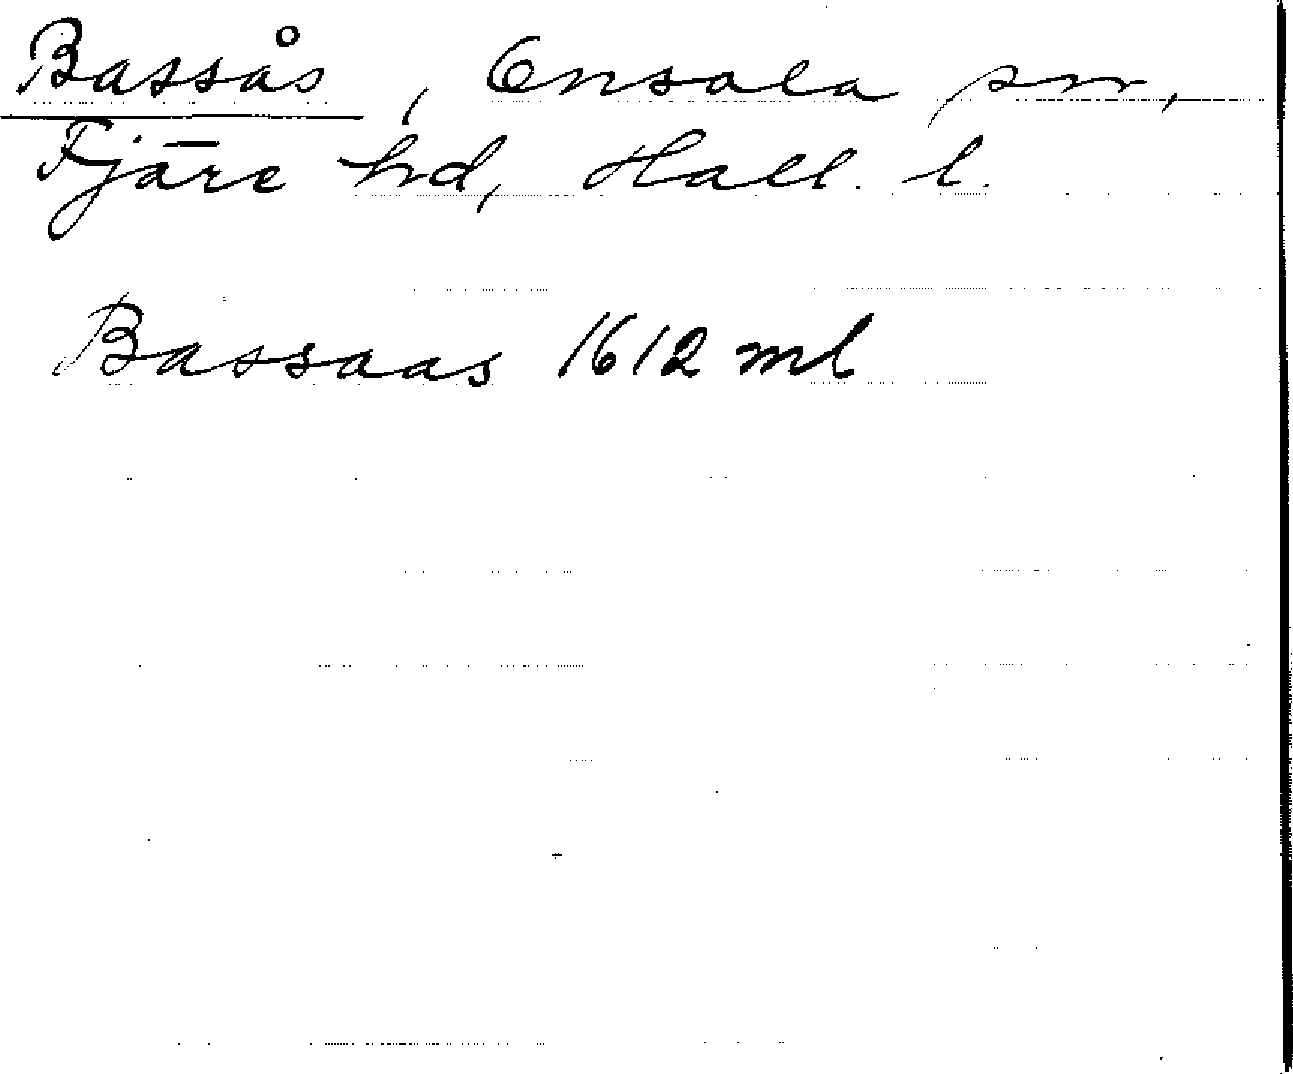 Bassås, Onsala sn,
Fjäre hd, Hall. l.
Bassaas 1612 ml